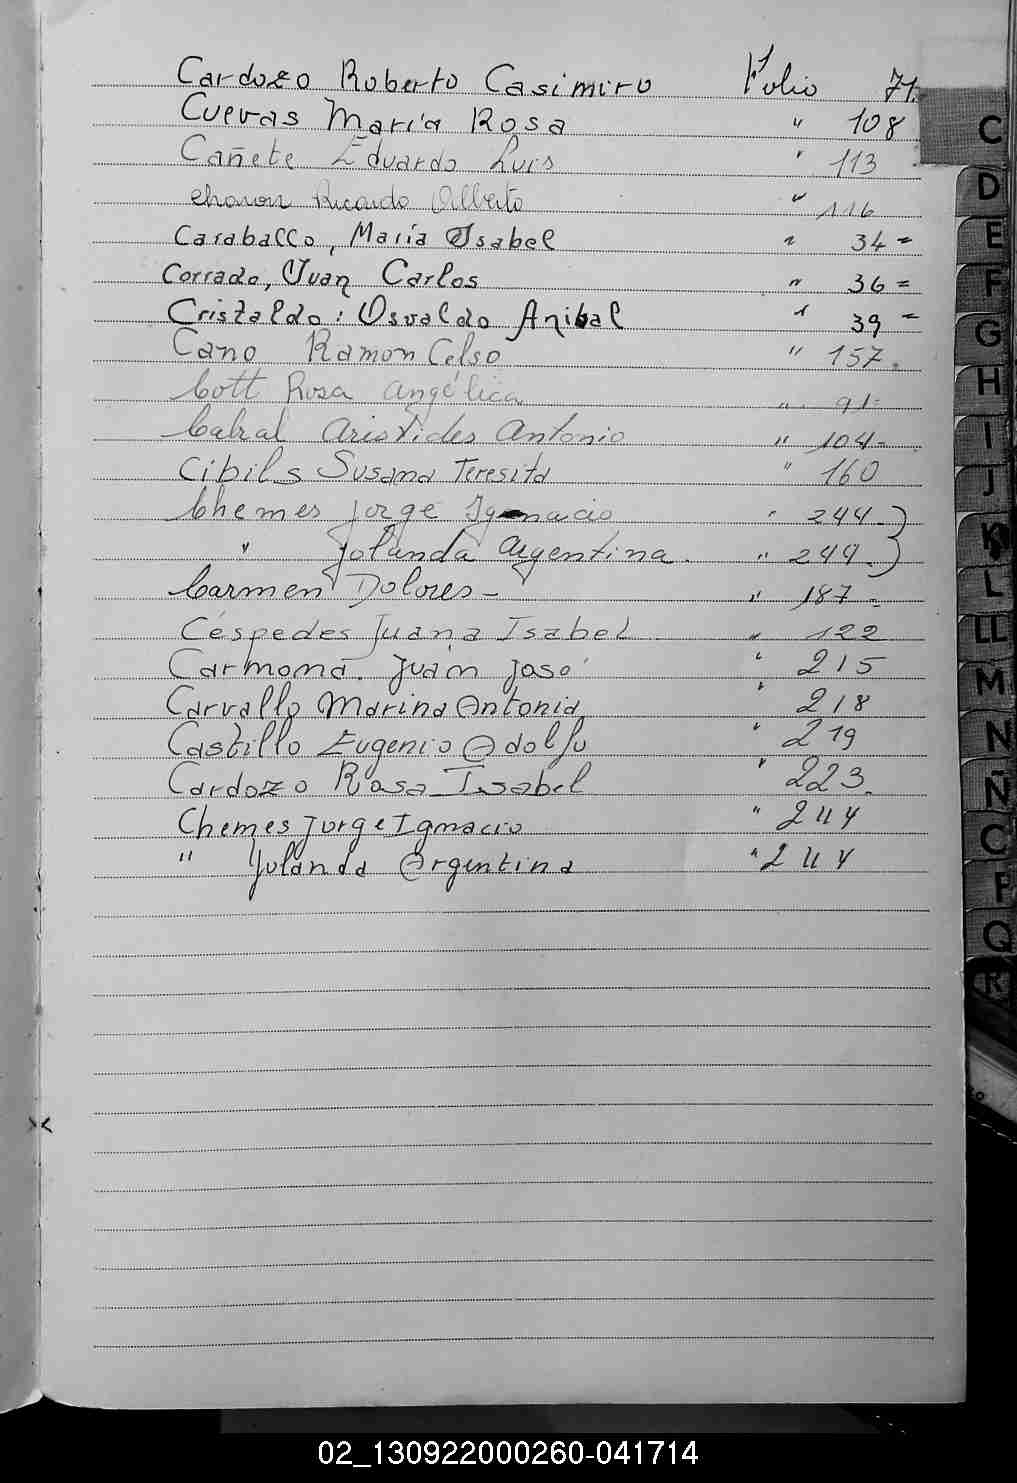 Cardozo Roberto Casimiro Folio 71.
Cuevas María Rosa " 108
Cañete Eduardo Luis " 113
Ricardo Alberto " 116
Caraballo, María Isabel " 34 =
Corrado, Juan Carlos " 36 =
Cristaldo: Osvaldo Anibal " 39 =
Cano Ramon Celso " 157.
Cott Rosa Angélica " 91-
Cabral Aristides Antonio " 104-
Cibils Susana Teresita " 160
Chemes Jorge Ignacio " 244-)
" Jolanda Argentina. " 244.)
Carmen Dolores- " 187 =
Céspedes Juana Isabel " 122
Carmona. Juan José " 215
Carvallo Marina Antonia " 218
Castillo Eugenio Adolfo " 219
Cardozo Rosa Isabel " 223.
Chemes Jorge Ignacio " 244
" Yolanda Argentina " 244
C
D
E
F
G
H
I
J
K
L
LL
M
N
Ñ
O
P
Q
R
02_130922000260-041714